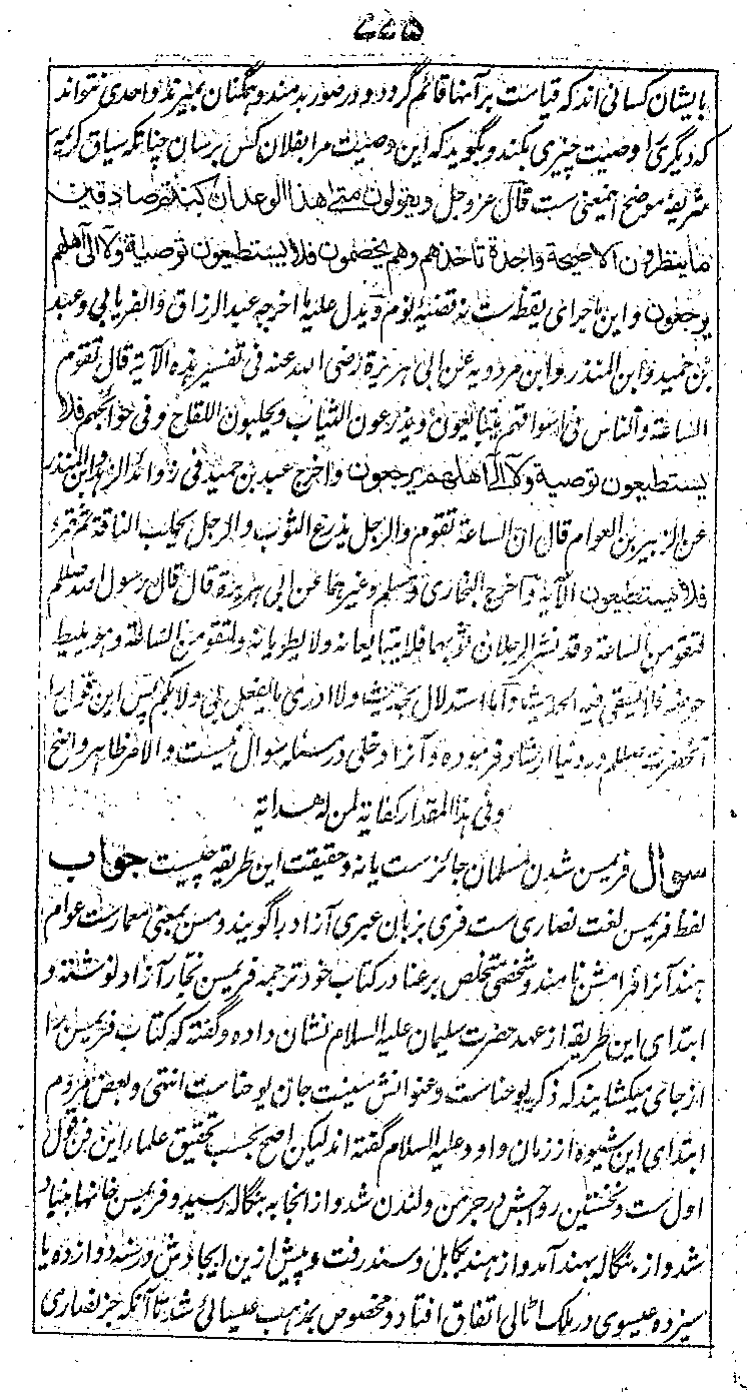 ۷۷۵
با ایشان کسانی اند که قیامت بر آنها قائم گردد و در صور بدمند و همگنان بمیرند و احدی نتواند
که دیگری را وصیت چیزی بکند و بگوید که این وصیت مرا بفلان کس برسان چنانکه سیاق کریمه
شریفه موضح اینمعنی ست قال عز وجل ویقولون متی هذا الوعد ان کنتم صادقین
ما ینظرون الا صیحة واحدة تاخذهم وهم یخصمون فلا یستطیعون توصیة ولا الی اهلهم
یرجعون و این ماجرای یقظه ست نه قضیهٔ نوم و یدل علیه ما اخرجه عبد الرزاق والفریابی وعبد
بن حمید وابن المنذر وابن مردویه عن ابی هریرة رضی الله عنه فی تفسیر هذه الآیة قال تقوم
الساعة والناس فی اسواقهم یتبایعون ویذرعون الثیاب ویحلبون اللقاح وفی حوائجهم فلا
یستطیعون توصیة ولا الی اهلهم یرجعون واخرج عبد بن حمید فی زوائد الزهد وابن المنذر
عن الزبیر بن العوام قال ان الساعة تقوم والرجل یذرع الثوب والرجل یحلب الناقة ثم قرء
فلا یستطیعون الآیة واخرج البخاری ومسلم وغیرهما عن ابی هریرة قال قال رسول الله صللم
لتقومن الساعة وقد نشر الرجلان ثوبهما فلا یتبایعانه ولا یطویانه ولتقومن الساعة وهو یلیط
حوضه فلا یسقی فیه الحدیث و اما استدلال بحدیث ولا ادری ما یفعل بی ولا بکم پس این قول را
آنحضرت صللم در دنیا ارشاد فرموده و آنرا دخلی در مسئله سوال نیست والامر ظاهر واضح
وفی هذا المقدار کفایة لمن له هدایة
سوال فریمسن شدن مسلمان جائزست یا نه و حقیقت این طریقه چیست جواب
لفظ فریمسن لغت نصاری ست فری بزبان عبری آزاد را گویند و مسن بمعنی معمارست عوام
هند آنرا فرامشن نامند و شخصی متخلص برعنا در کتاب خود ترجمه فریمسن نجار آزاد نوشته و
ابتدای این طریقه از عهد حضرت سلیمان علیه السلام نشان داده و گفته که کتاب فریمسن را
از جای میکشایند که ذکر یوحناست و عنوانش سینت جان یوحناست انتهی و بعض مردم
ابتدای این شیوه از زمان داود علیه السلام گفته اند لیکن اصح بحسب تحقیق علماء این فن قول
اول ست و نخستین رواجش در جرمن و لندن شد و از انجا به بنگاله رسید و فریمسن خانها بنیاد
شد و از بنگاله بهند آمد و از هند بکابل و سند رفت و پیش ازین ایجادش در سنه دوازده یا
سیزده عیسوی در ملک اٹالی اتفاق افتاد و مخصوص بمذهب عیسائی شد تا آنکه جز نصاری